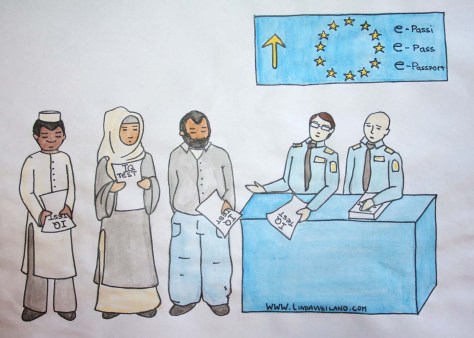 e-Passi
e-Pass
e-Passport
IQ
TEST
IQ
TEST
IQ
TEST
IQ
TEST
WWW.LINDAWEILAND.COM